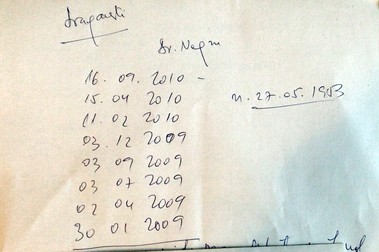 Dr. Negru
16. 09. 2010 -
15. 04 2010
n. 27.05.1953
11. 02 2010
03. 12 2009
03 09 2009
03 07 2009
02 04 2009
30 01 2009